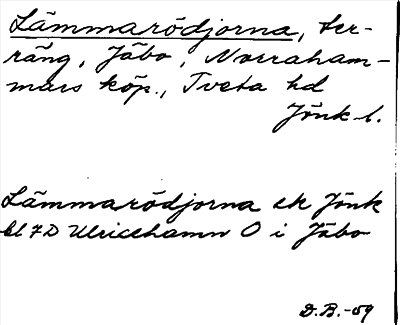 Lämmarödjorna, ter-
räng, Jäbo, Norraham-
mars köp., Tveta hd
Jönk. l.
Lämmarödjorna ek Jönk
bl 7D Ulricehamn O i Jäbo
D.B.-59